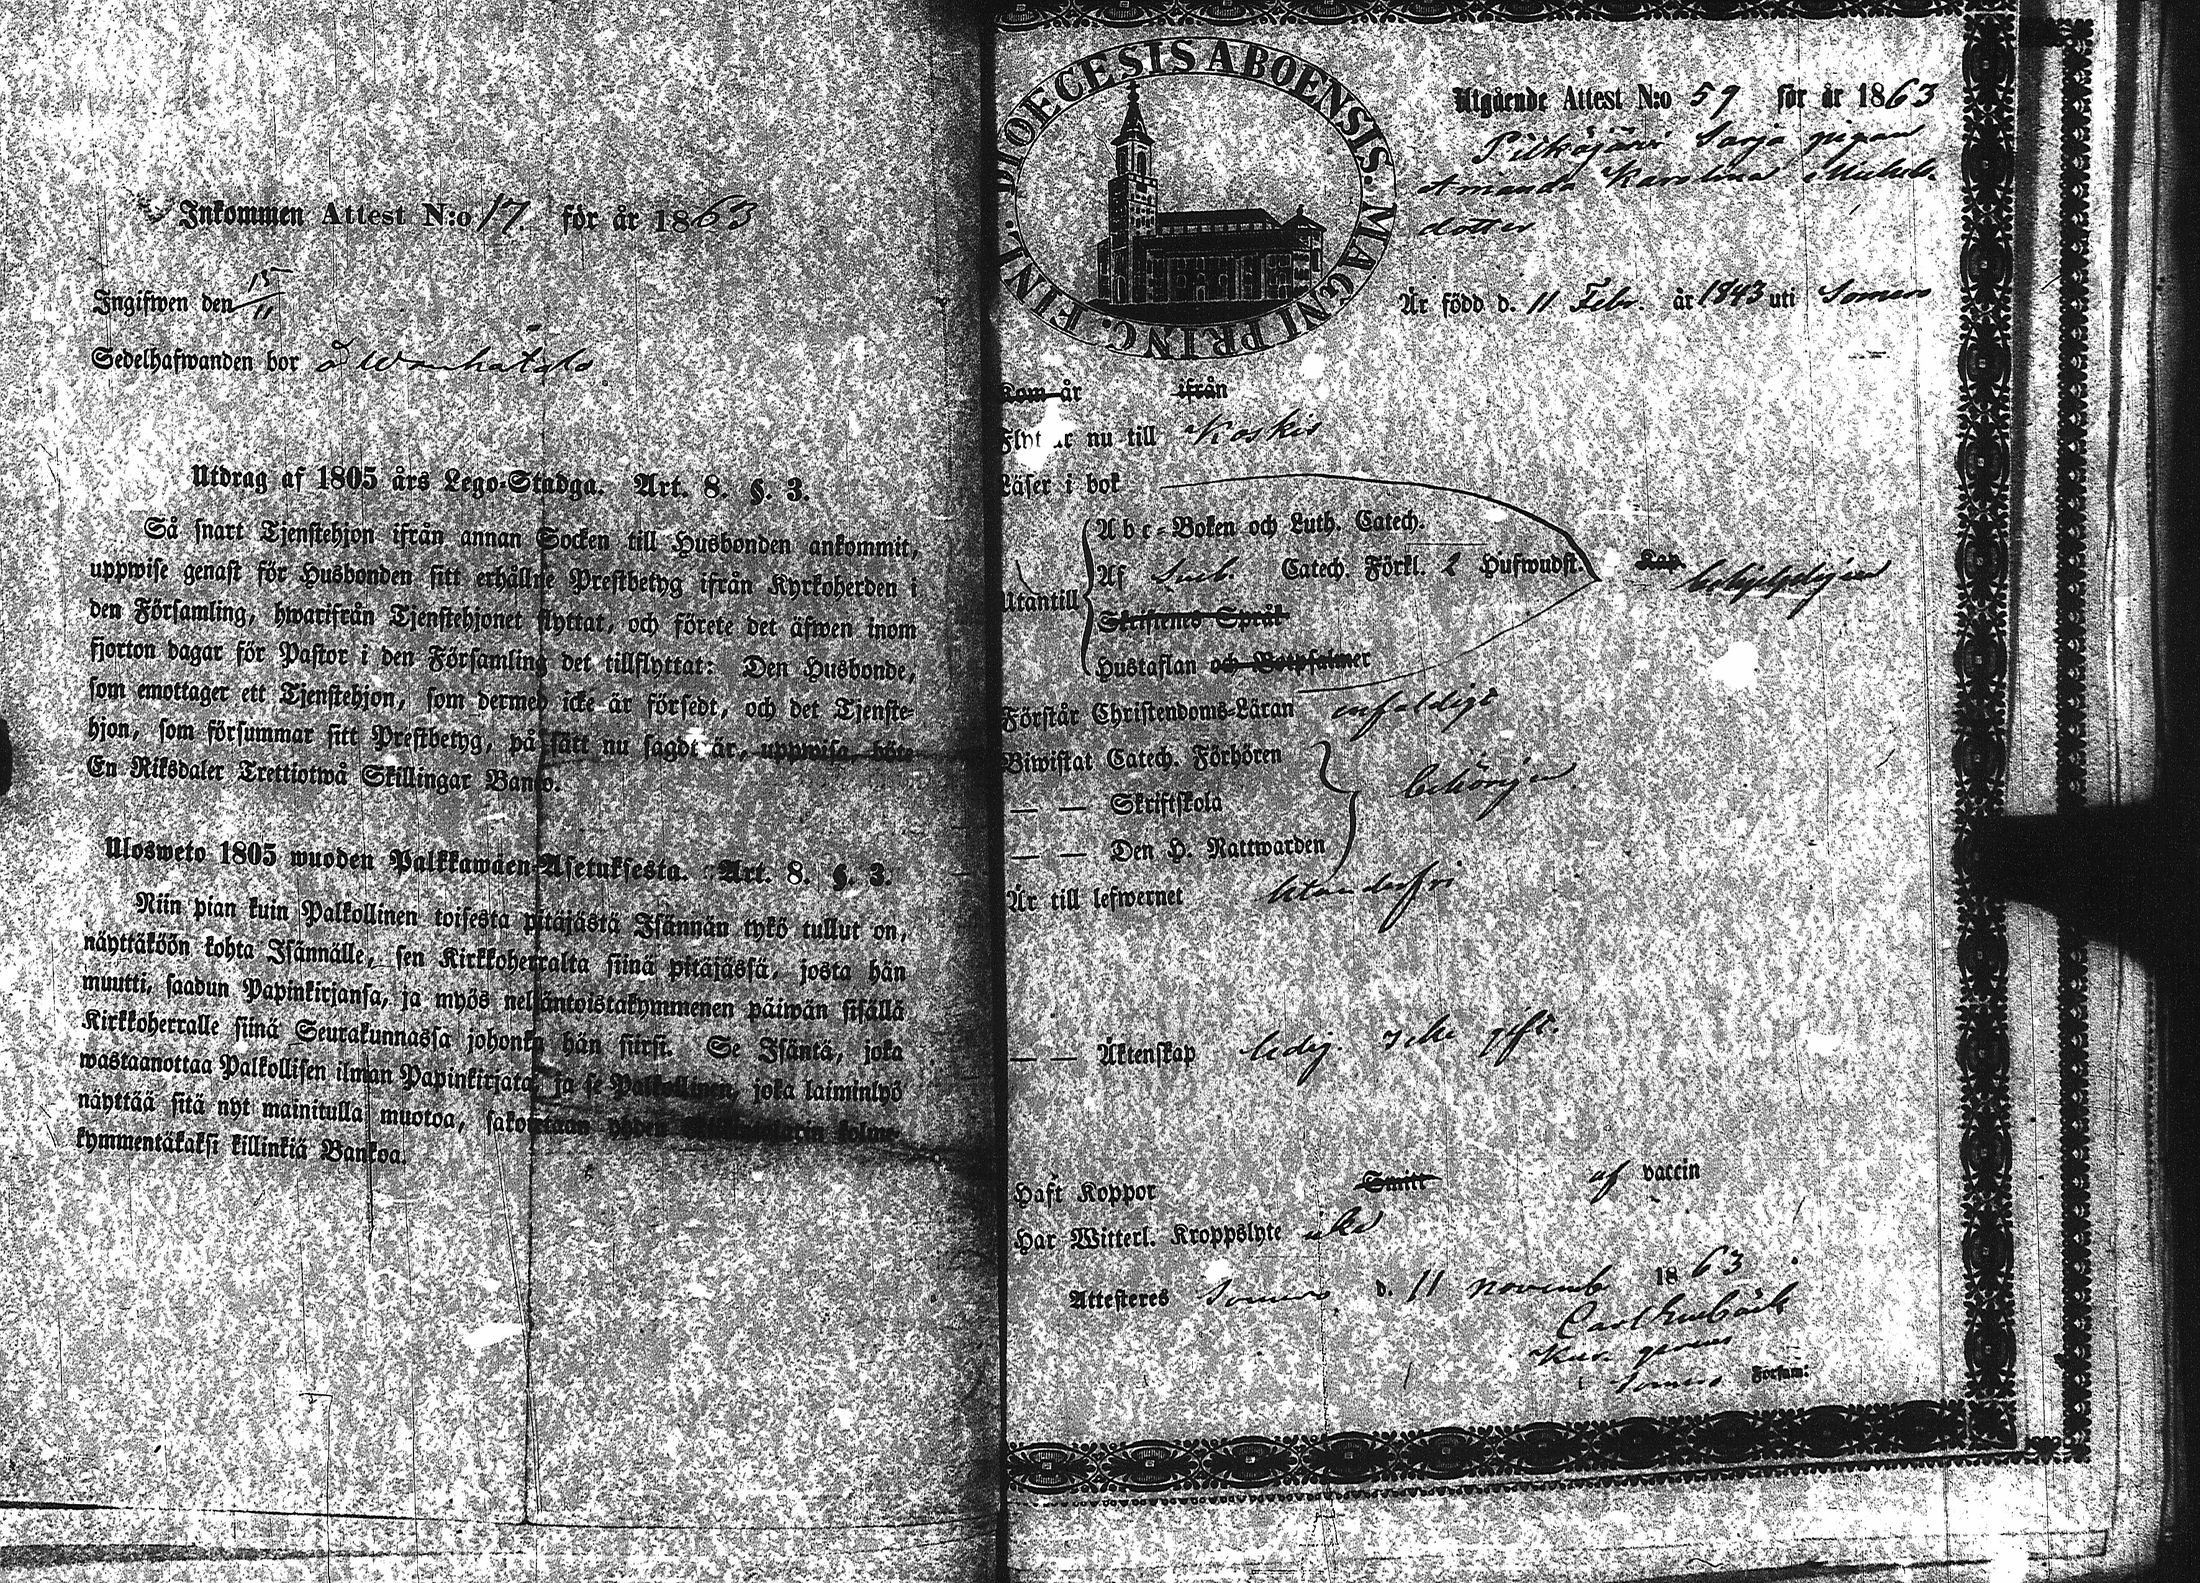 Inkommen Attest N:o 17. för år 1863
Ingifwen den 15/11
Sedelhafwanden bor å
Utdrag af 1805 års Lego-Stadga. Art. 8. §. 3.
Så snart Tjenstehjon ifrån annan Socken till Husbonden ankommit,
uppwise genast för Husbonden sitt erhållne Prestbetyg ifrån Kyrkoherden i
den Församling, hwarifrån Tjenstehjonet flyttat, och förete det äfwen inom
fjorton dagar för Pastor i den Församling det tillflyttat: Den Husbonde,
som emottager ett Tjenstehjon, som dermed icke är försedt, och det Tjenste-
hjon, som försummar sitt Prestbetyg, på sätt nu sagdt är, uppwisa, böte
En Riksdaler Trettiotwå Skillingar Banco.
Ulosweto 1805 wuoden Palkkawäen-Asetuksesta. Art. 8. §. 3.
Niin pian kuin Palkollinen toisesta pitäjästä Isännän tykö tullut on,
näyttäköön kohta Isännälle, sen Kirkkoherralta siinä pitäjässä, josta hän
muutti, saadun Papinkirjansa, ja myös neljäntoistakymmenen päiwän sisällä
Kirkkoherralle siinä Seurakunnassa johonka hän siirsi. Se Isäntä, joka
wastaanottaa Palkollisen ilman Papinkirjata, ja se Palkollinen, joka laiminlyö
näyttää sitä nyt mainitulla muotoa, sakoitetaan yhden kolme-
kymmentäkaksi killinkiä Bankoa.
DIOECESIS ABOENSIS. MAGNI PRINC. FINL.
Utgående Attest N:o 59 för år 1863
Pitkäjärvi Sarja pigan
Amanda Karolina Michels
dotter
Är född d. 11 Febr. år 1843 uti Somero
Kom år ifrån
Flyttar nu till Koskis
Läser i bok
Utantill
A b c-Boken och Luth. Catech.
Af Catech. Förkl. 2 Hufwudst. Kap.
Skriftenes Språk
Hustaflan och Botpsalmer
Förstår Christendoms-Läran enfaldigt
Biwistat Catech. Förhören
— — Skriftskola behörigen
— — Den H. Nattwarden
Är till lefwernet klanderfri
— — Äktenskap ledig. Icke gift.
Haft Koppor Smitt af vaccin
Har Witterl. Kroppslyte icke
Attesteres Somero d. 11 novemb 1863
Carl
Somero Försam: